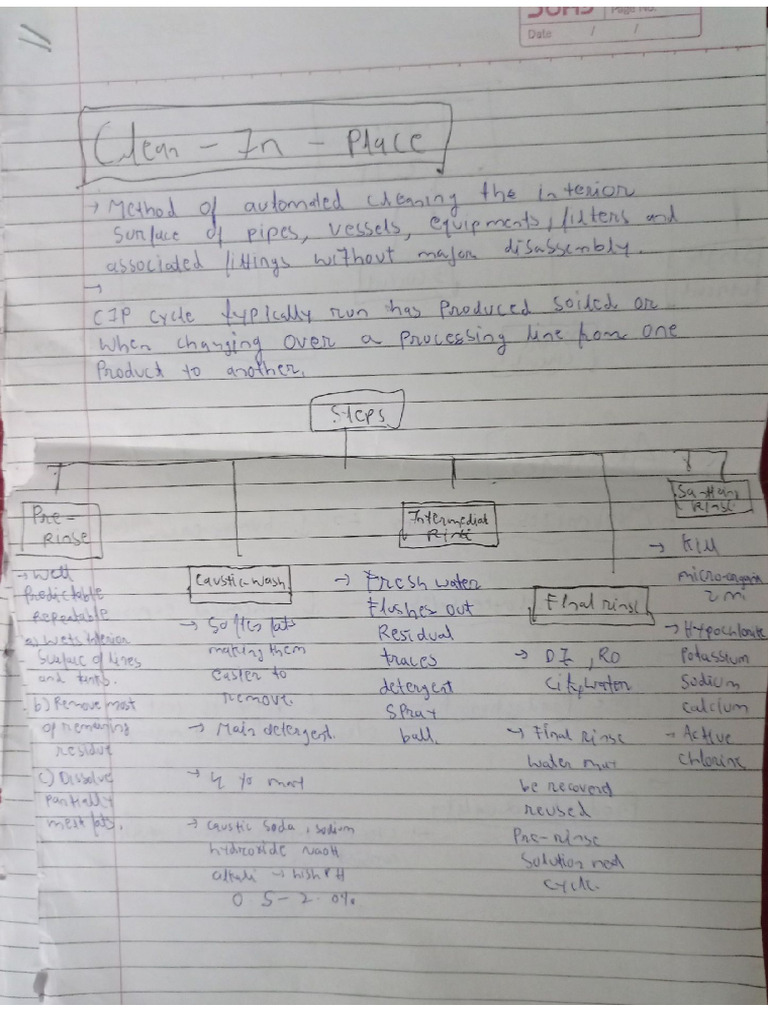 Page No.
Date / /
Clean - In - Place
→ Method of automated cleaning the interior
surface of pipes, vessels, equipments, filters and
associated fittings without major disassembly.
→
CIP cycle typically run has produced soiled or
when changing over a processing line from one
Product to another.
Steps
Pre-
Rinse
→ Well
Predictable
Repeatable
a) Wets interior
surface of lines
and tanks.
b) Remove most
of remaining
residue
c) Dissolve
partially
melt fats.
Caustic-wash
→ Softes fats
making them
easier to
remove.
→ Main detergent.
→ 4 % most
→ caustic soda, sodium
hydroxide NaOH
alkali → high PH
0 5 - 2.0%
Intermediat
Rinse
→ Fresh water
flushes out
Residual
traces
detergent
spray
ball.
Final rinse
→ DI, RO
city, water
→ Final Rinse
water
be recovered
reused
Pre-rinse
solution next
cycle.
Rinse
→ Kill
→ Hypochlorate
Potassium
Sodium
calcium
→ Active
chlorine